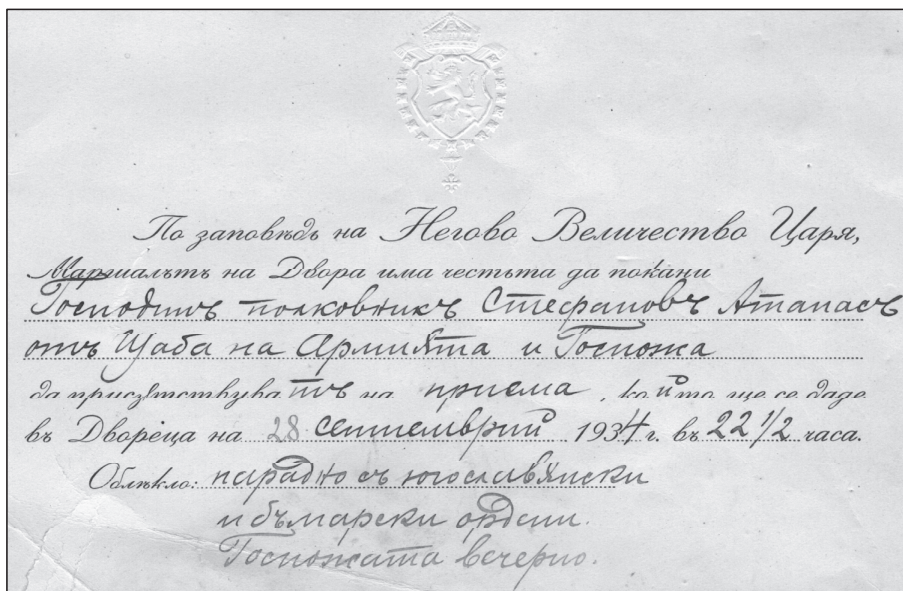 По заповѣдь на Негово Величество Царя,
Маршалътъ на Двора има честьта да покани
Господинъ полковникъ Стефановъ Атанасъ
отъ Щаба на Армията и Госпожа
да присѫтствуватъ на приема, който ще се даде
въ Двореца на 28 септемврий 1934 г. въ 22 1/2 часа.
Облѣкло: парадно съ югославянски
и български ордени.
Госпожата вечерно.